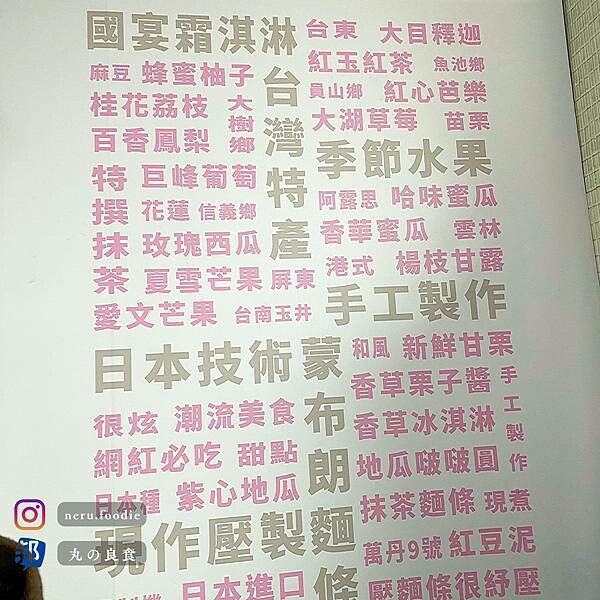 國宴霜淇淋
台東 大目釋迦
麻豆 蜂蜜柚子
紅玉紅茶 魚池鄉
桂花荔枝 大樹鄉
員山鄉 紅心芭樂
百香鳳梨
大湖草莓 苗栗
台灣特產
季節水果
特撰抹茶
巨峰葡萄
阿露思 哈味蜜瓜
花蓮 信義鄉
香華蜜瓜 雲林
玫瑰西瓜
港式 楊枝甘露
夏雪芒果 屏東
愛文芒果 台南玉井
手工製作
日本技術蒙布朗
和風 新鮮甘栗
香草栗子醬 手工製作
很炫 潮流美食
香草冰淇淋
網紅必吃 甜點
地瓜啵啵圓
日本種 紫心地瓜
抹茶麵條 現煮
現作壓製麵條
萬丹9號 紅豆泥
日本進口
壓麵條很紓壓
neru.foodie
丸の良食